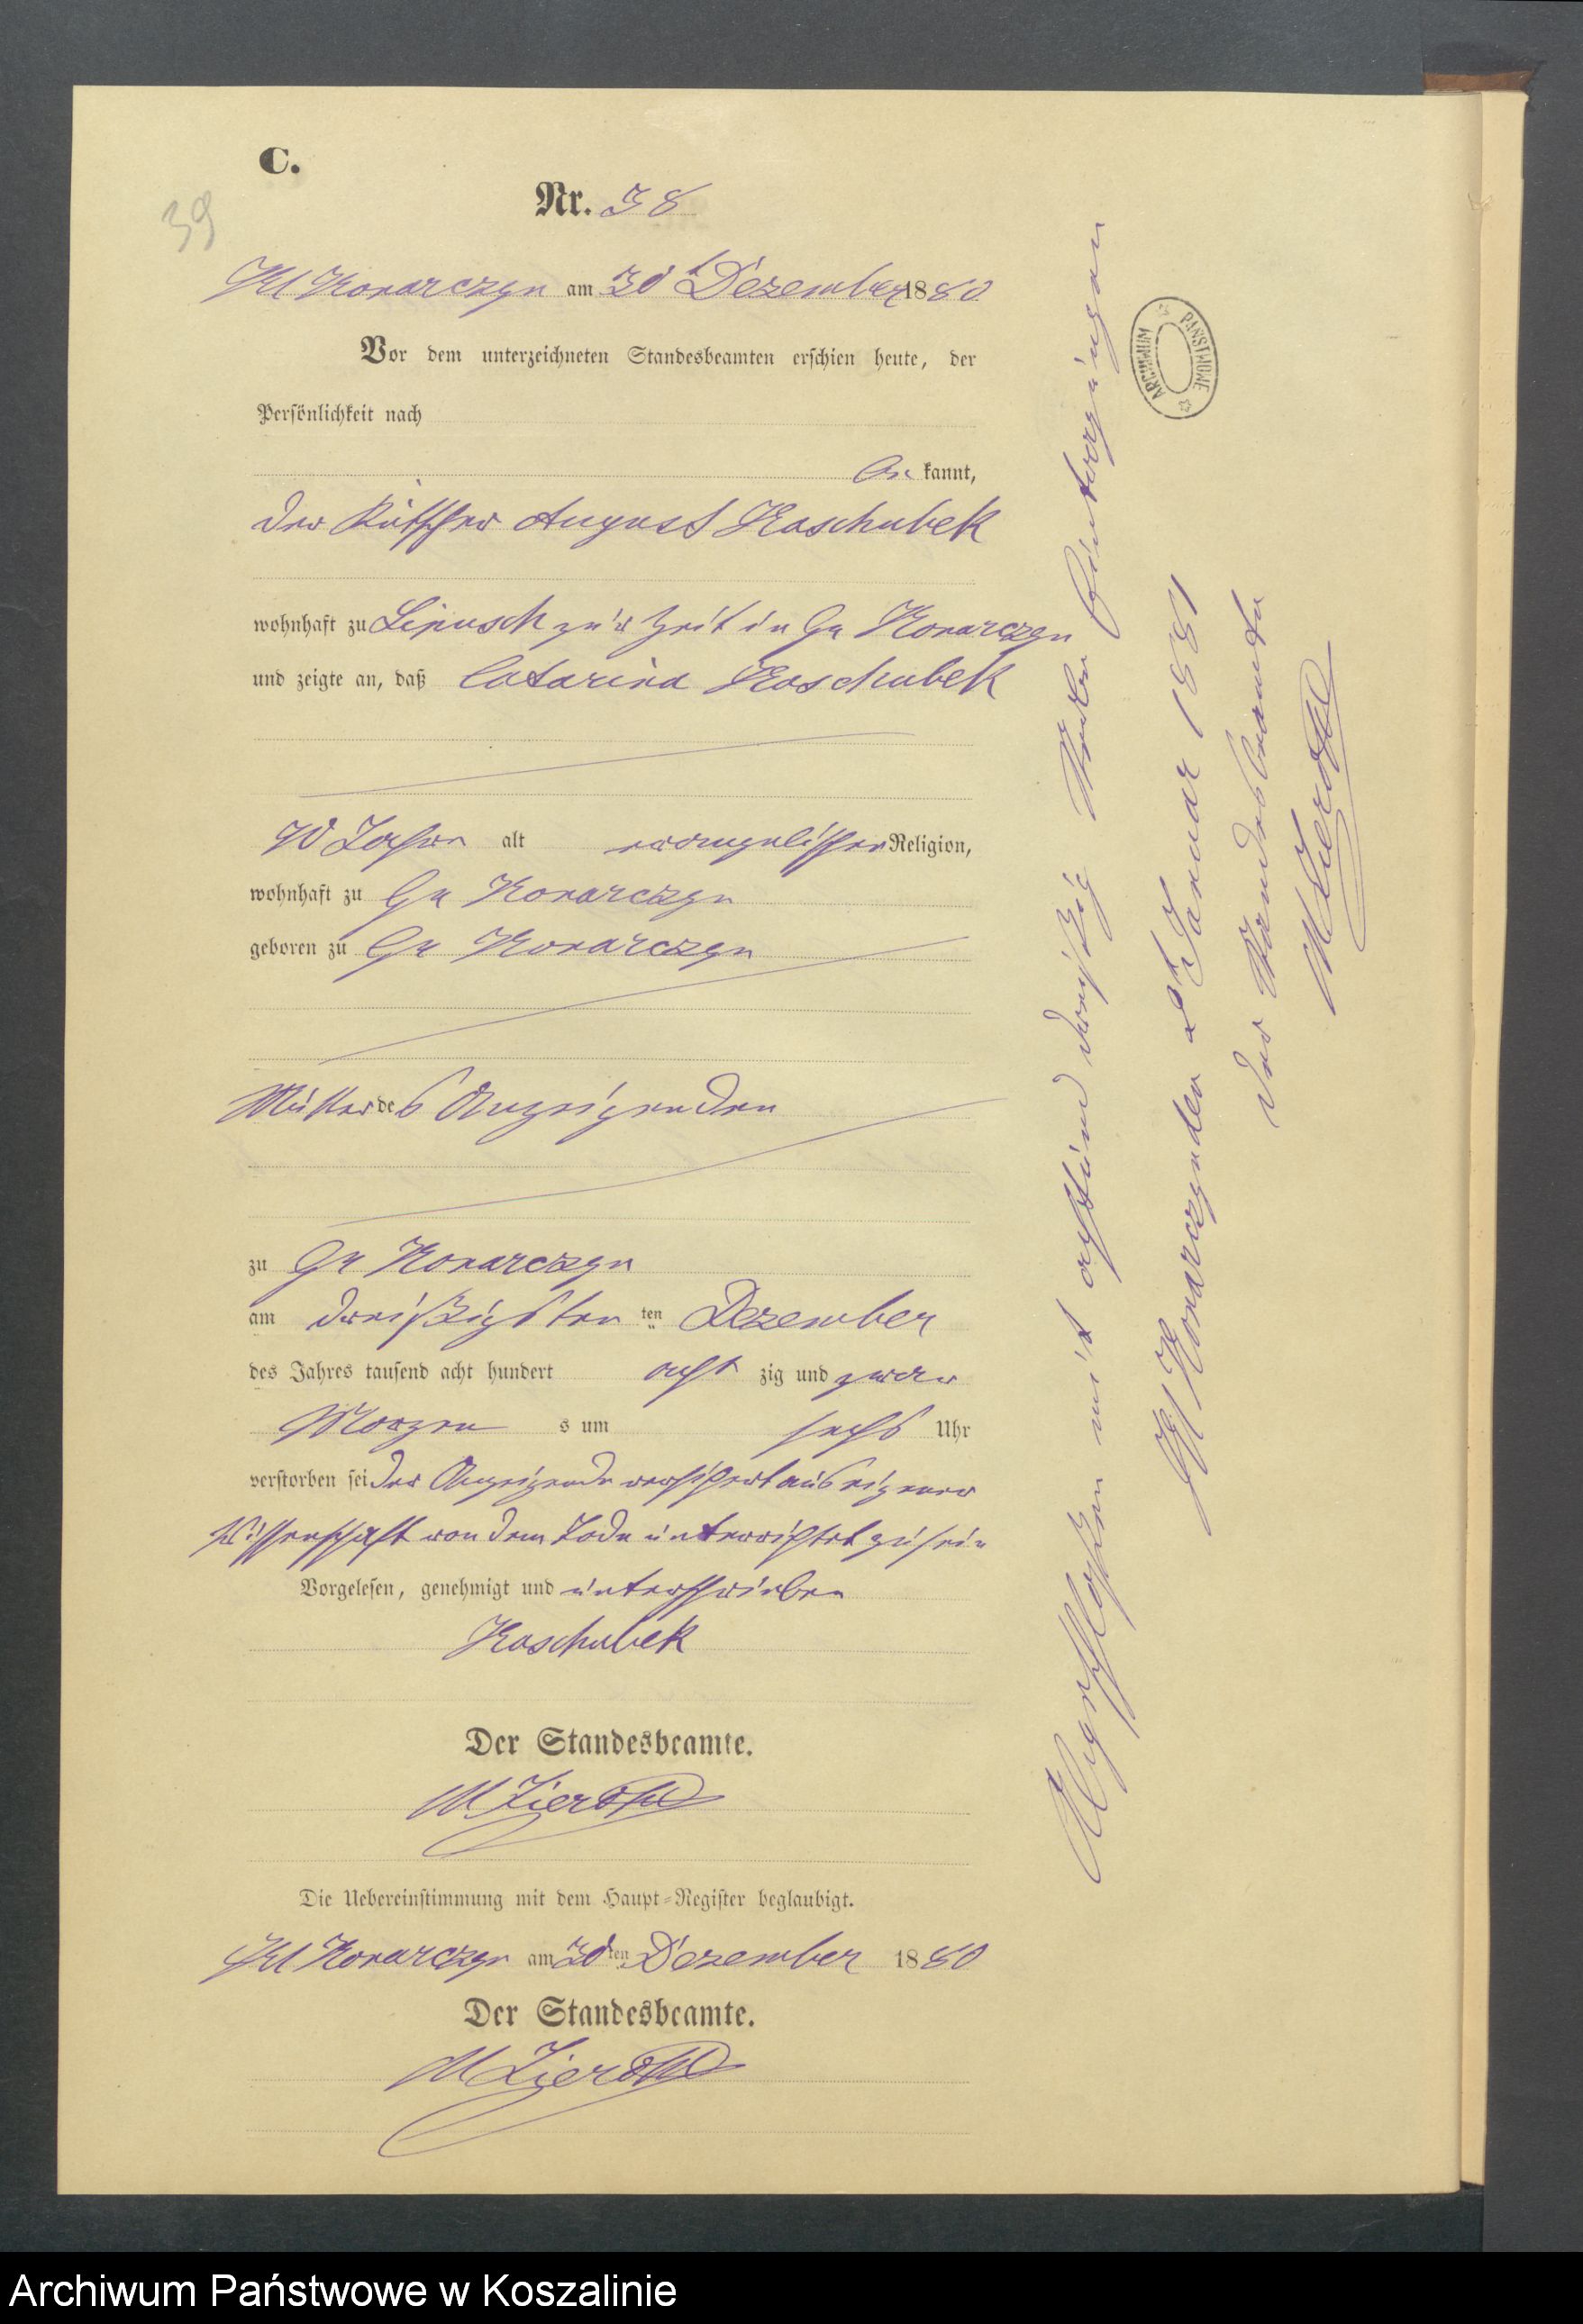 C.
Nr. 38
39
Kl Konarczyn am 30t Dezember 1880
Vor dem unterzeichneten Standesbeamten erschien heute, der
Persönlichkeit nach
be kannt,
der Kutscher August Kaschubek
wohnhaft zu Lipusch zur Zeit in Gr Konarczyn
und zeigte an, daß Catarina Kaschubek
Jahre alt evangelischer Religion,
wohnhaft zu Gr Konarczyn
geboren zu Gr Konarczyn
Mutter des Anzeigenden
zu Gr Konarczyn
am dreißigsten ten Dezember
des Jahres tausend acht hundert acht zig und zwar
Morgen s um sechs Uhr
verstorben sei der Anzeigende versichert aus eigener
Wissenschaft von dem Tode unterrichtet zu sein
Vorgelesen, genehmigt und unterschrieben
Kaschubek
Der Standesbeamte.
M Zieroth
Die Uebereinstimmung mit dem Haupt-Register beglaubigt.
Kl Konarczyn am 30ten Dezember 1880
Der Standesbeamte.
M Zieroth
Abgeschlossen mit achtund dreißig Eintragungen
Kl Konarczyn den 2t Januar 1881
der Standesbeamte
M Zieroth
ARCHIWUM PAŃSTWOWE
Archiwum Państwowe w Koszalinie